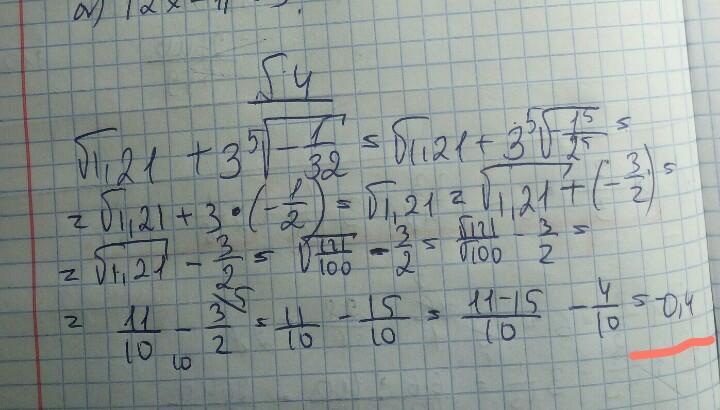 √4
√1,21 + 3⁵√-1/32 = √1,21 + 3⁵√-1⁵/2⁵ =
= √1,21 + 3·(-1/2) = √1,21 = √1,21 + (-3/2) =
= √1,21 - 3/2 = √121/100 - 3/2 = √121/√100 - 3/2 =
= 11/10 - 3/2 \5 = 11/10 - 15/10 = 11-15/10 - 4/10 = -0,4
10